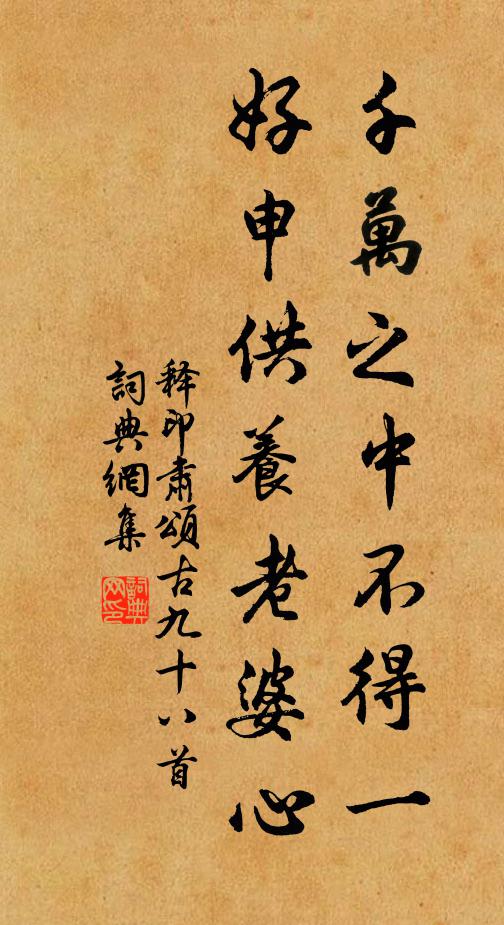 千萬之中不得一
好申供養老婆心
释印肅頌古九十八首
詞典網集
詞典網印